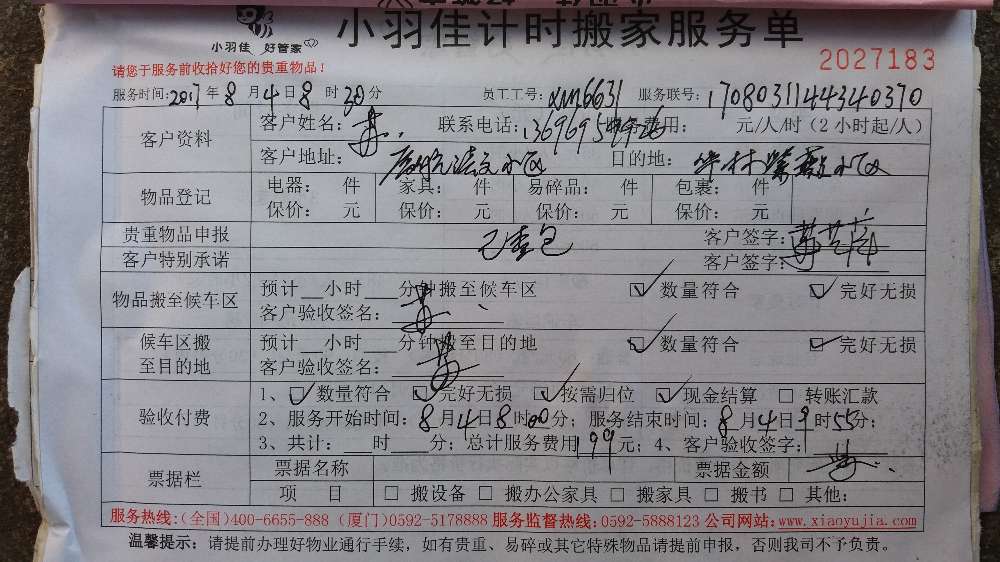 小羽佳计时搬家服务单
小羽佳 好管家
2027183
请您于服务前收拾好您的贵重物品！
服务时间：2017年8月4日8时30分 员工工号：XM6631 服务联号：17080311443440370
客户资料 客户姓名： 联系电话： 元/人/时（2小时起/人）
客户地址： 小区 目的地： 小区
物品登记 电器： 件 家具： 件 易碎品： 件 包裹： 件
保价： 元 保价： 元 保价： 元 保价： 元
贵重物品申报 已查包 客户签字：
客户特别承诺 客户签字：
物品搬至候车区 预计__小时___分钟搬至候车区 ☑数量符合 ☑完好无损
客户验收签名：
候车区搬至目的地 预计__小时___分钟搬至目的地 ☑数量符合 ☑完好无损
客户验收签名：
验收付费 1、☑数量符合 ☑完好无损 ☑按需归位 ☑现金结算 □转账汇款
2、服务开始时间：8月4日8时00分；服务结束时间：8月4日9时55分；
3、共计：___时___分；总计服务费用199元；4、客户验收签字：
票据栏 票据名称 票据金额
项 目 □搬设备 □搬办公家具 □搬家具 □搬书 □其他：
服务热线：(全国)400-6655-888 (厦门)0592-5178888 服务监督热线：0592-5888123 公司网站：www.xiaoyujia.com
温馨提示：请提前办理好物业通行手续，如有贵重、易碎或其它特殊物品请提前申报，否则我司不予负责。